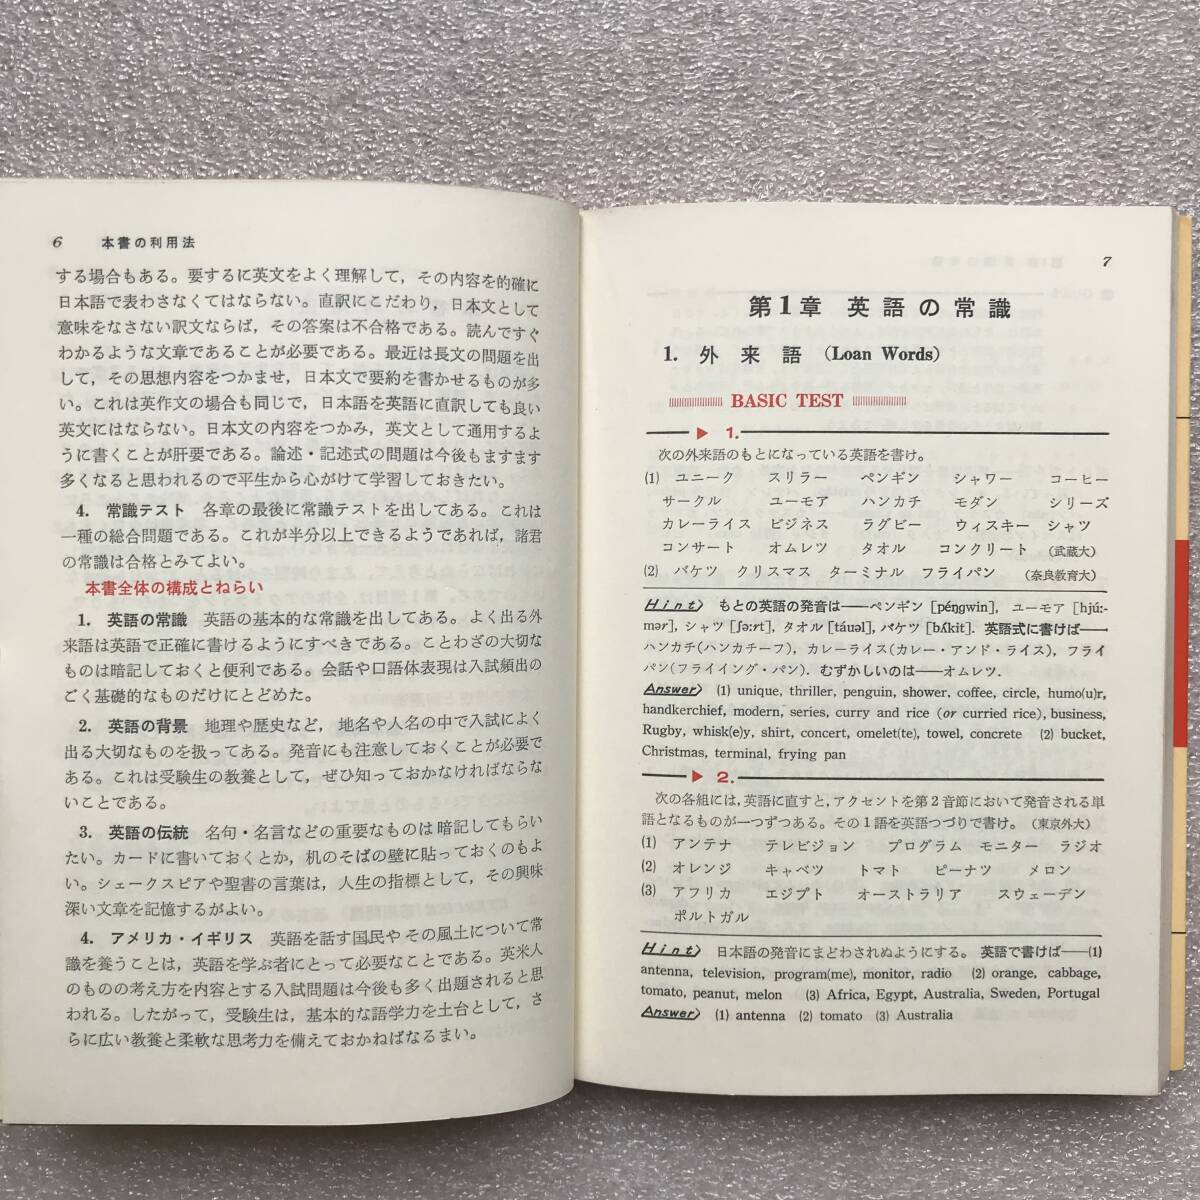 6 本書の利用法
する場合もある。要するに英文をよく理解して，その内容を的確に
日本語で表わさなくてはならない。直訳にこだわり，日本文として
意味をなさない訳文ならば，その答案は不合格である。読んですぐ
わかるような文章であることが必要である。最近は長文の問題を出
して，その思想内容をつかませ，日本文で要約を書かせるものが多
い。これは英作文の場合も同じで，日本語を英語に直訳しても良い
英文にはならない。日本文の内容をつかみ，英文として通用するよ
うに書くことが肝要である。論述・記述式の問題は今後もますます
多くなると思われるので平生から心がけて学習しておきたい。
4. 常識テスト 各章の最後に常識テストを出してある。これは
一種の総合問題である。これが半分以上できるようであれば，諸君
の常識は合格とみてよい。
本書全体の構成とねらい
1. 英語の常識 英語の基本的な常識を出してある。よく出る外
来語は英語で正確に書けるようにすべきである。ことわざの大切な
ものは暗記しておくと便利である。会話や口語体表現は入試頻出の
ごく基礎的なものだけにとどめた。
2. 英語の背景 地理や歴史など，地名や人名の中で入試によく
出る大切なものを扱ってある。発音にも注意しておくことが必要で
ある。これは受験生の教養として，ぜひ知っておかなければならな
いことである。
3. 英語の伝統 名句・名言などの重要なものは暗記してもらい
たい。カードに書いておくとか，机のそばの壁に貼っておくのもよ
い。シェークスピアや聖書の言葉は，人生の指標として，その興味
深い文章を記憶するがよい。
4. アメリカ・イギリス 英語を話す国民やその風土について常
識を養うことは，英語を学ぶ者にとって必要なことである。英米人
のものの考え方を内容とする入試問題は今後も多く出題されると思
われる。したがって，受験生は，基本的な語学力を土台として，さ
らに広い教養と柔軟な思考力を備えておかねばなるまい。
7
第1章 英語の常識
1. 外来語 (Loan Words)
BASIC TEST
▶ 1.
次の外来語のもとになっている英語を書け。
(1) ユニーク スリラー ペンギン シャワー コーヒー
サークル ユーモア ハンカチ モダン シリーズ
カレーライス ビジネス ラグビー ウィスキー シャツ
コンサート オムレツ タオル コンクリート (武蔵大)
(2) バケツ クリスマス ターミナル フライパン (奈良教育大)
Hint もとの英語の発音は——ペンギン [péŋgwin], ユーモア [hjú:-
mər], シャツ [ʃə:rt], タオル [táuəl], バケツ [bʌ́kit]. 英語式に書けば——
ハンカチ(ハンカチーフ), カレーライス(カレー・アンド・ライス), フライ
パン(フライイング・パン). むずかしいのは——オムレツ.
Answer (1) unique, thriller, penguin, shower, coffee, circle, humo(u)r,
handkerchief, modern, series, curry and rice (or curried rice), business,
Rugby, whisk(e)y, shirt, concert, omelet(te), towel, concrete (2) bucket,
Christmas, terminal, frying pan
▶ 2.
次の各組には，英語に直すと，アクセントを第2音節において発音される単
語となるものが一つずつある。その1語を英語つづりで書け。(東京外大)
(1) アンテナ テレビジョン プログラム モニター ラジオ
(2) オレンジ キャベツ トマト ピーナツ メロン
(3) アフリカ エジプト オーストラリア スウェーデン
ポルトガル
Hint 日本語の発音にまどわされぬようにする。英語で書けば——(1)
antenna, television, program(me), monitor, radio (2) orange, cabbage,
tomato, peanut, melon (3) Africa, Egypt, Australia, Sweden, Portugal
Answer (1) antenna (2) tomato (3) Australia